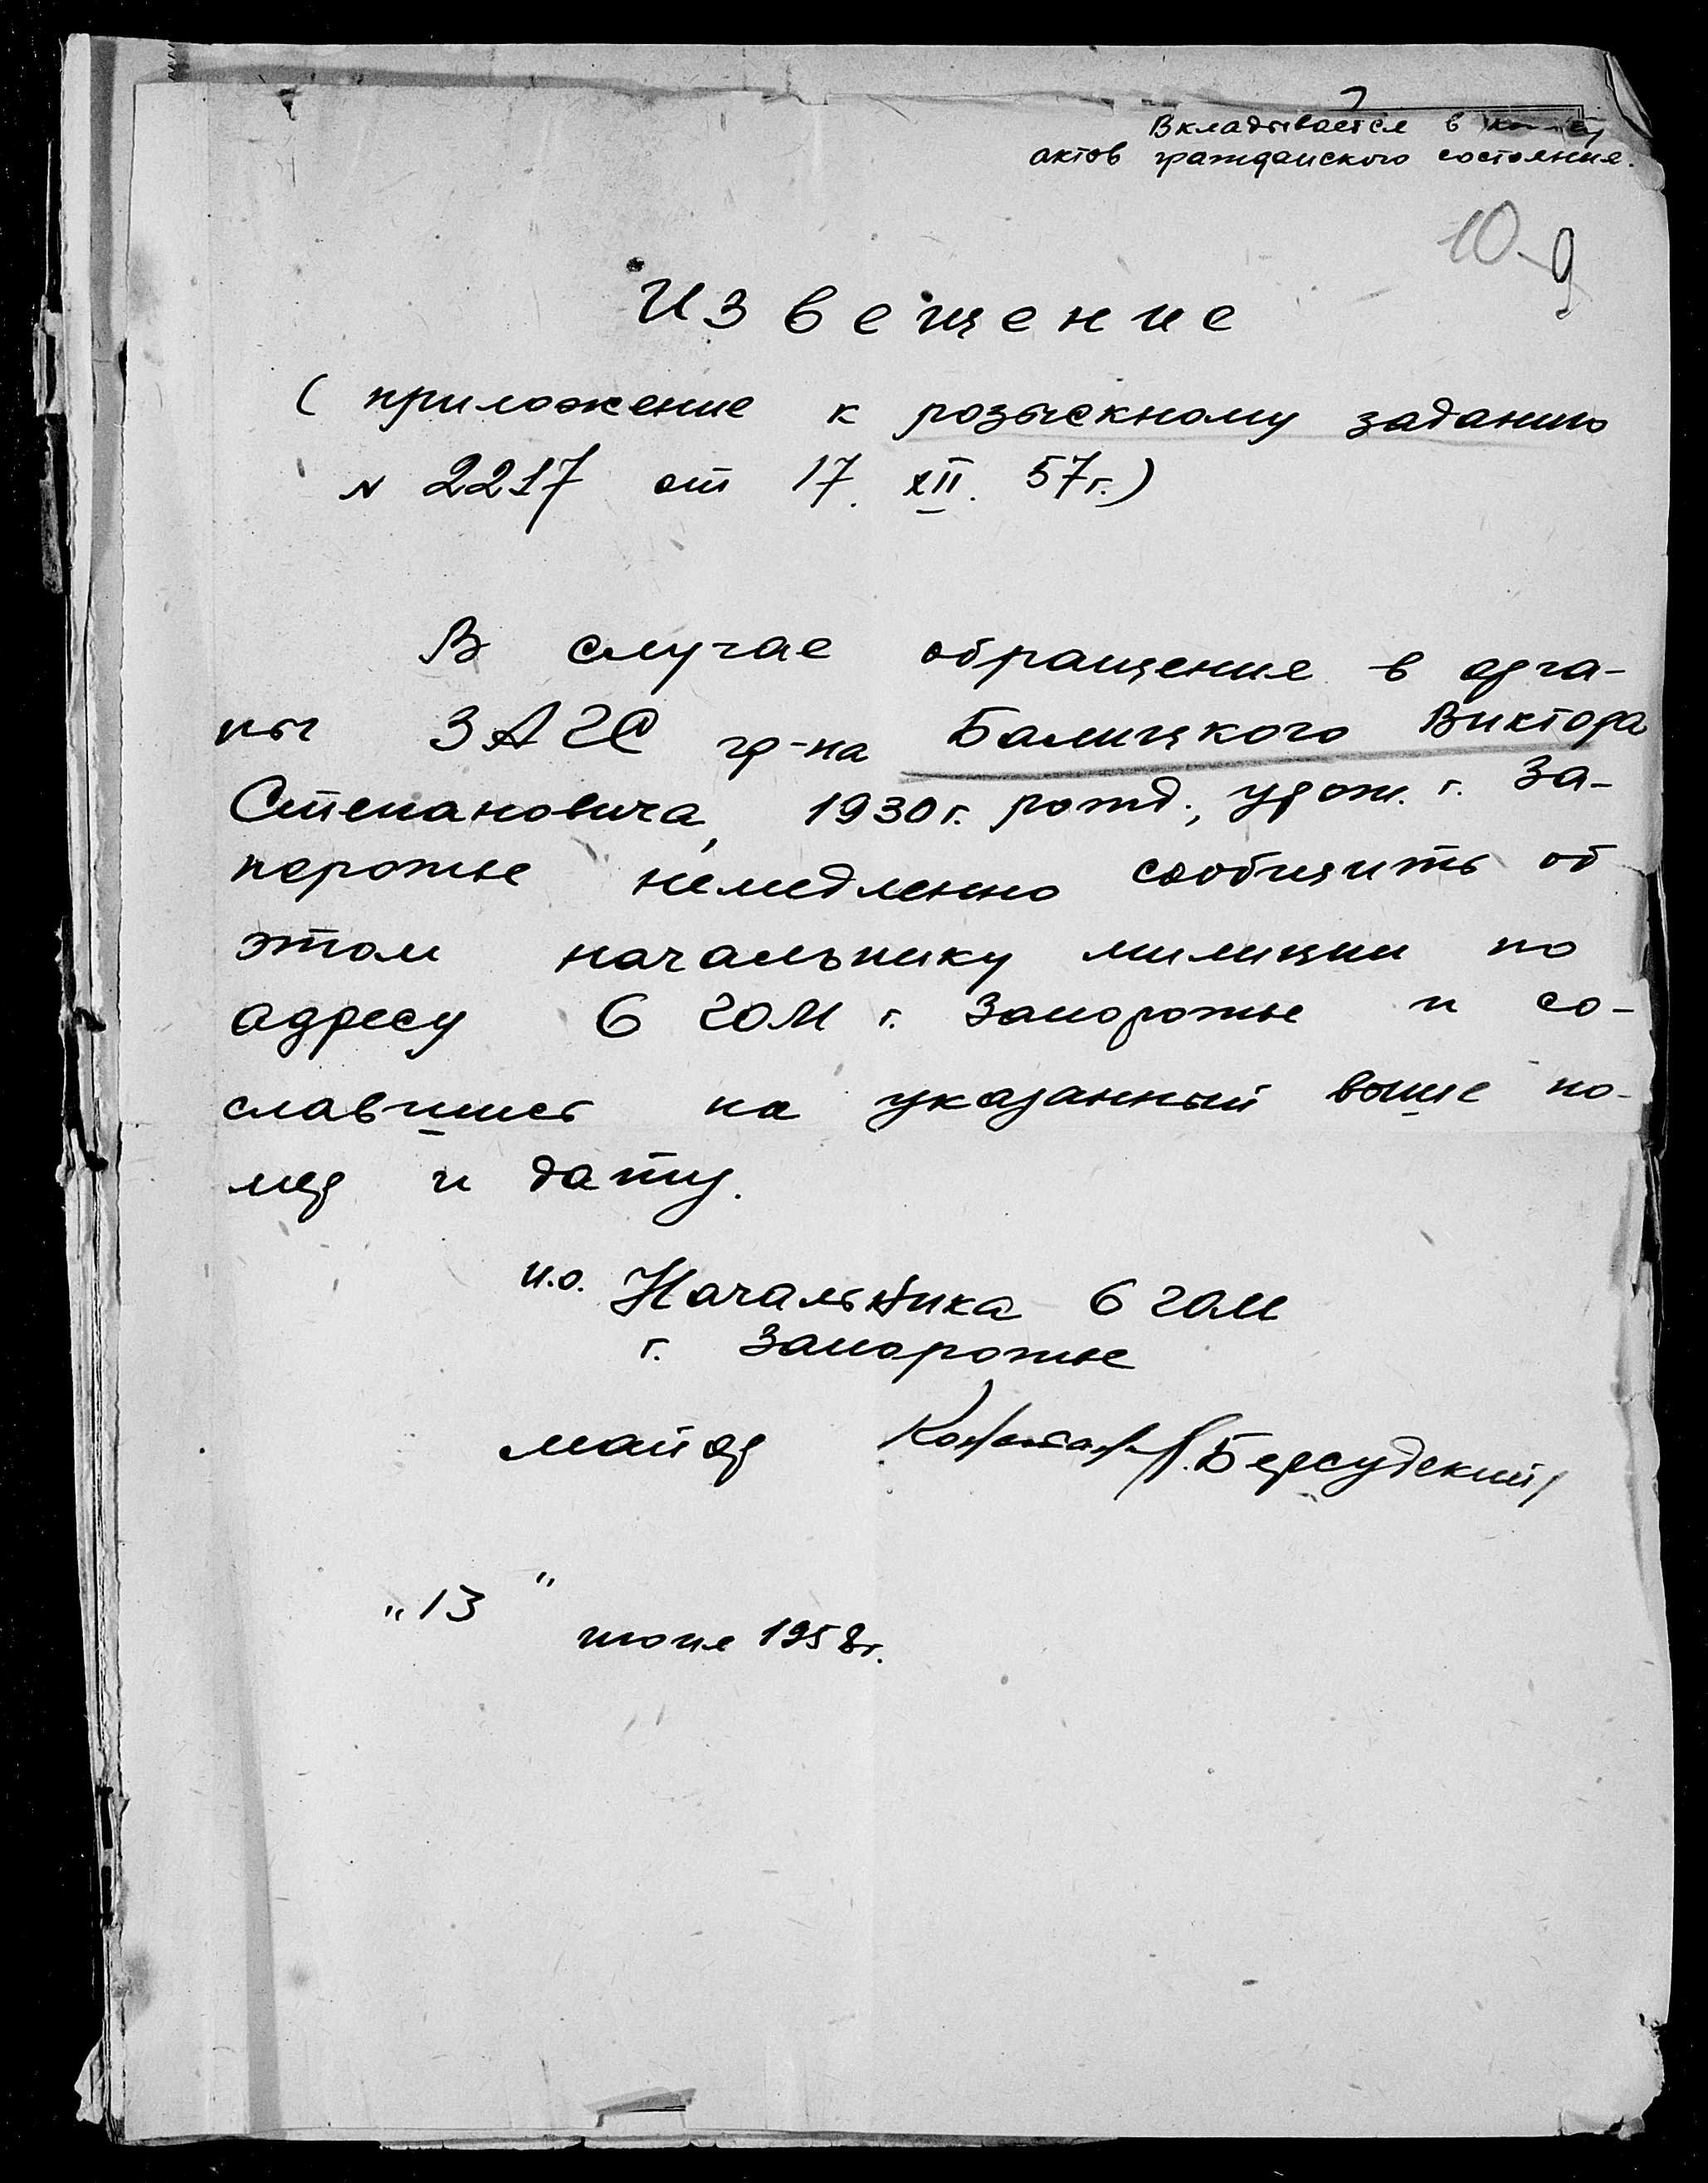 Вкладывается в книгу
актов гражданского состояния.
10 9
Извещение
(приложение к розыскному заданию
№ 2217 от 17. XII. 57г.)
В случае обращения в орга-
ны ЗАГС гр-на Балицкого Виктора
Степановича, 1930г. рожд., урож. г. За-
порожье немедленно сообщить об
этом начальнику милиции по
адресу 6 ГОМ г. Запорожье и со-
славшись на указанный выше но-
мер и дату.
и.о. Начальника 6 ГОМ
г. Запорожье
майор /Берсудский/
"13" июня 1958г.